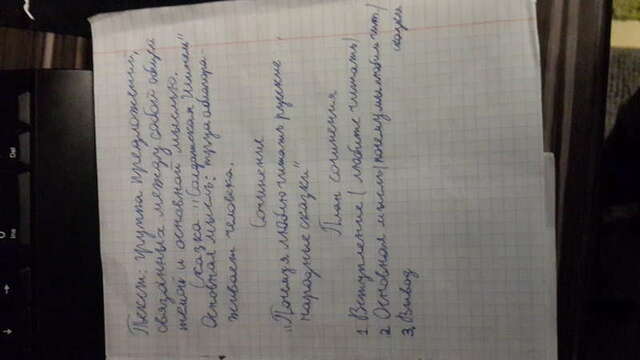 Ins
Del
Текст: группа предложений,
связанных между собой общей
темой и основной мыслью.
Сказка "Солдатская Шинель"
Основная мысль: труд облагора-
живает человека.
Сочинение
"Почему я люблю читать русские
народные сказки"
План сочинения
1. Вступление (любите читать)
2. Основная мысль (почему мы любим чит.)
сказки
3. Вывод